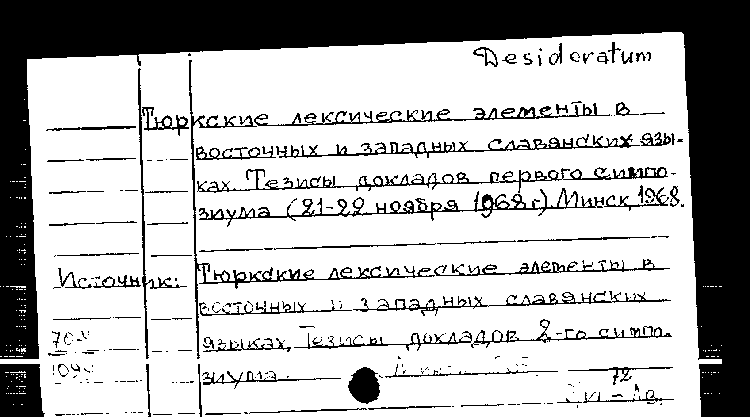 Desideratum
Тюркские лексические элементы в
восточных и западных славянских язы-
ках. Тезисы докладов первого симпо-
зиума (21-22 ноября 1968 г.) Минск, 1968.
Источник: Тюркские лексические элементы в
восточных и западных славянских
языках. Тезисы докладов 2-го симпо-
зиума.
72